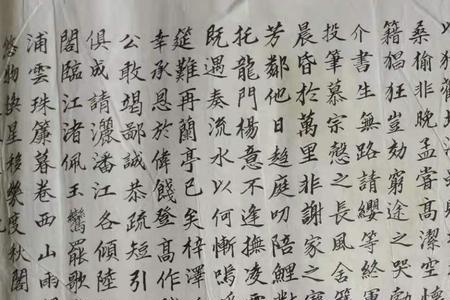 桑偷非晚孟嘗高潔空懷
籍猖狂豈効窮途之哭勃
介書生無路請纓等終軍
投筆慕宗愨之長風舍
晨昏於萬里非謝家之
芳鄰他日趍庭叨陪鯉
托龍門楊意不逢撫凌雲
既遇奏流水以何慚嗚
筵難再蘭亭已矣梓澤
幸承恩於偉餞登高作
公敢竭鄙誠恭疏短引
俱成請灑潘江各傾陸
閣臨江渚佩玉鸞罷歌
浦雲珠簾暮卷西山雨
悠物換星移幾度秋閣